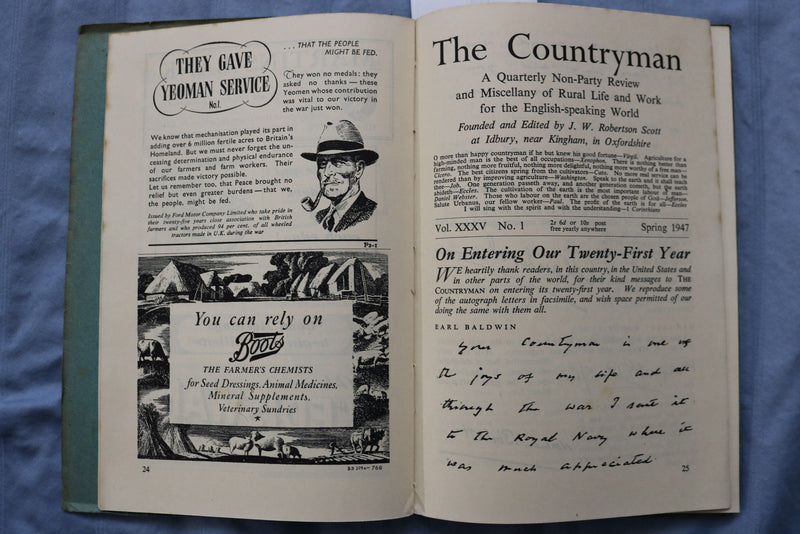 THEY GAVE
YEOMAN SERVICE
No.1.
... THAT THE PEOPLE
MIGHT BE FED.
They won no medals: they
asked no thanks — these
Yeomen whose contribution
was vital to our victory in
the war just won.
We know that mechanisation played its part in
adding over 6 million fertile acres to Britain's
Homeland. But we must never forget the un-
ceasing determination and physical endurance
of our farmers and farm workers. Their
sacrifices made victory possible.
Let us remember too, that Peace brought no
relief but even greater burdens — that we,
the people, might be fed.
Issued by Ford Motor Company Limited who take pride in
their twenty-five years close association with British
farmers and who produced 94 per cent. of all wheeled
tractors made in U.K. during the war
F2-1
You can rely on
Boots
THE FARMER'S CHEMISTS
for Seed Dressings, Animal Medicines,
Mineral Supplements,
Veterinary Sundries
24
The Countryman
A Quarterly Non-Party Review
and Miscellany of Rural Life and Work
for the English-speaking World
Founded and Edited by J. W. Robertson Scott
at Idbury, near Kingham, in Oxfordshire
O more than happy countryman if he but knew his good fortune—Virgil. Agriculture for a
high-minded man is the best of all occupations—Xenophon. There is nothing better than
farming, nothing more fruitful, nothing more delightful, nothing more worthy of a free man—
Cicero. The best citizens spring from the cultivators—Cato. No more real service can be
rendered than by improving agriculture—Washington. Speak to the earth and it shall teach
thee—Job. One generation passeth away, and another generation cometh, but the earth
abideth—Eccles. The cultivation of the earth is the most important labour of man—
Daniel Webster. Those who labour on the earth are the chosen people of God—Jefferson.
Salute Urbanus, our fellow worker—Paul. The profit of the earth is for all—Eccles
I will sing with the spirit and with the understanding—I Corinthians
Vol. XXXV No. 1 2s 6d or 10s post free yearly anywhere Spring 1947
On Entering Our Twenty-First Year
WE heartily thank readers, in this country, in the United States and
in other parts of the world, for their kind messages to THE
COUNTRYMAN on entering its twenty-first year. We reproduce some
of the autograph letters in facsimile, and wish space permitted of our
doing the same with them all.
EARL BALDWIN
Your Countryman is one of
the joys of my life and all
through the war I sent it
to the Royal Navy where it
was much appreciated
25